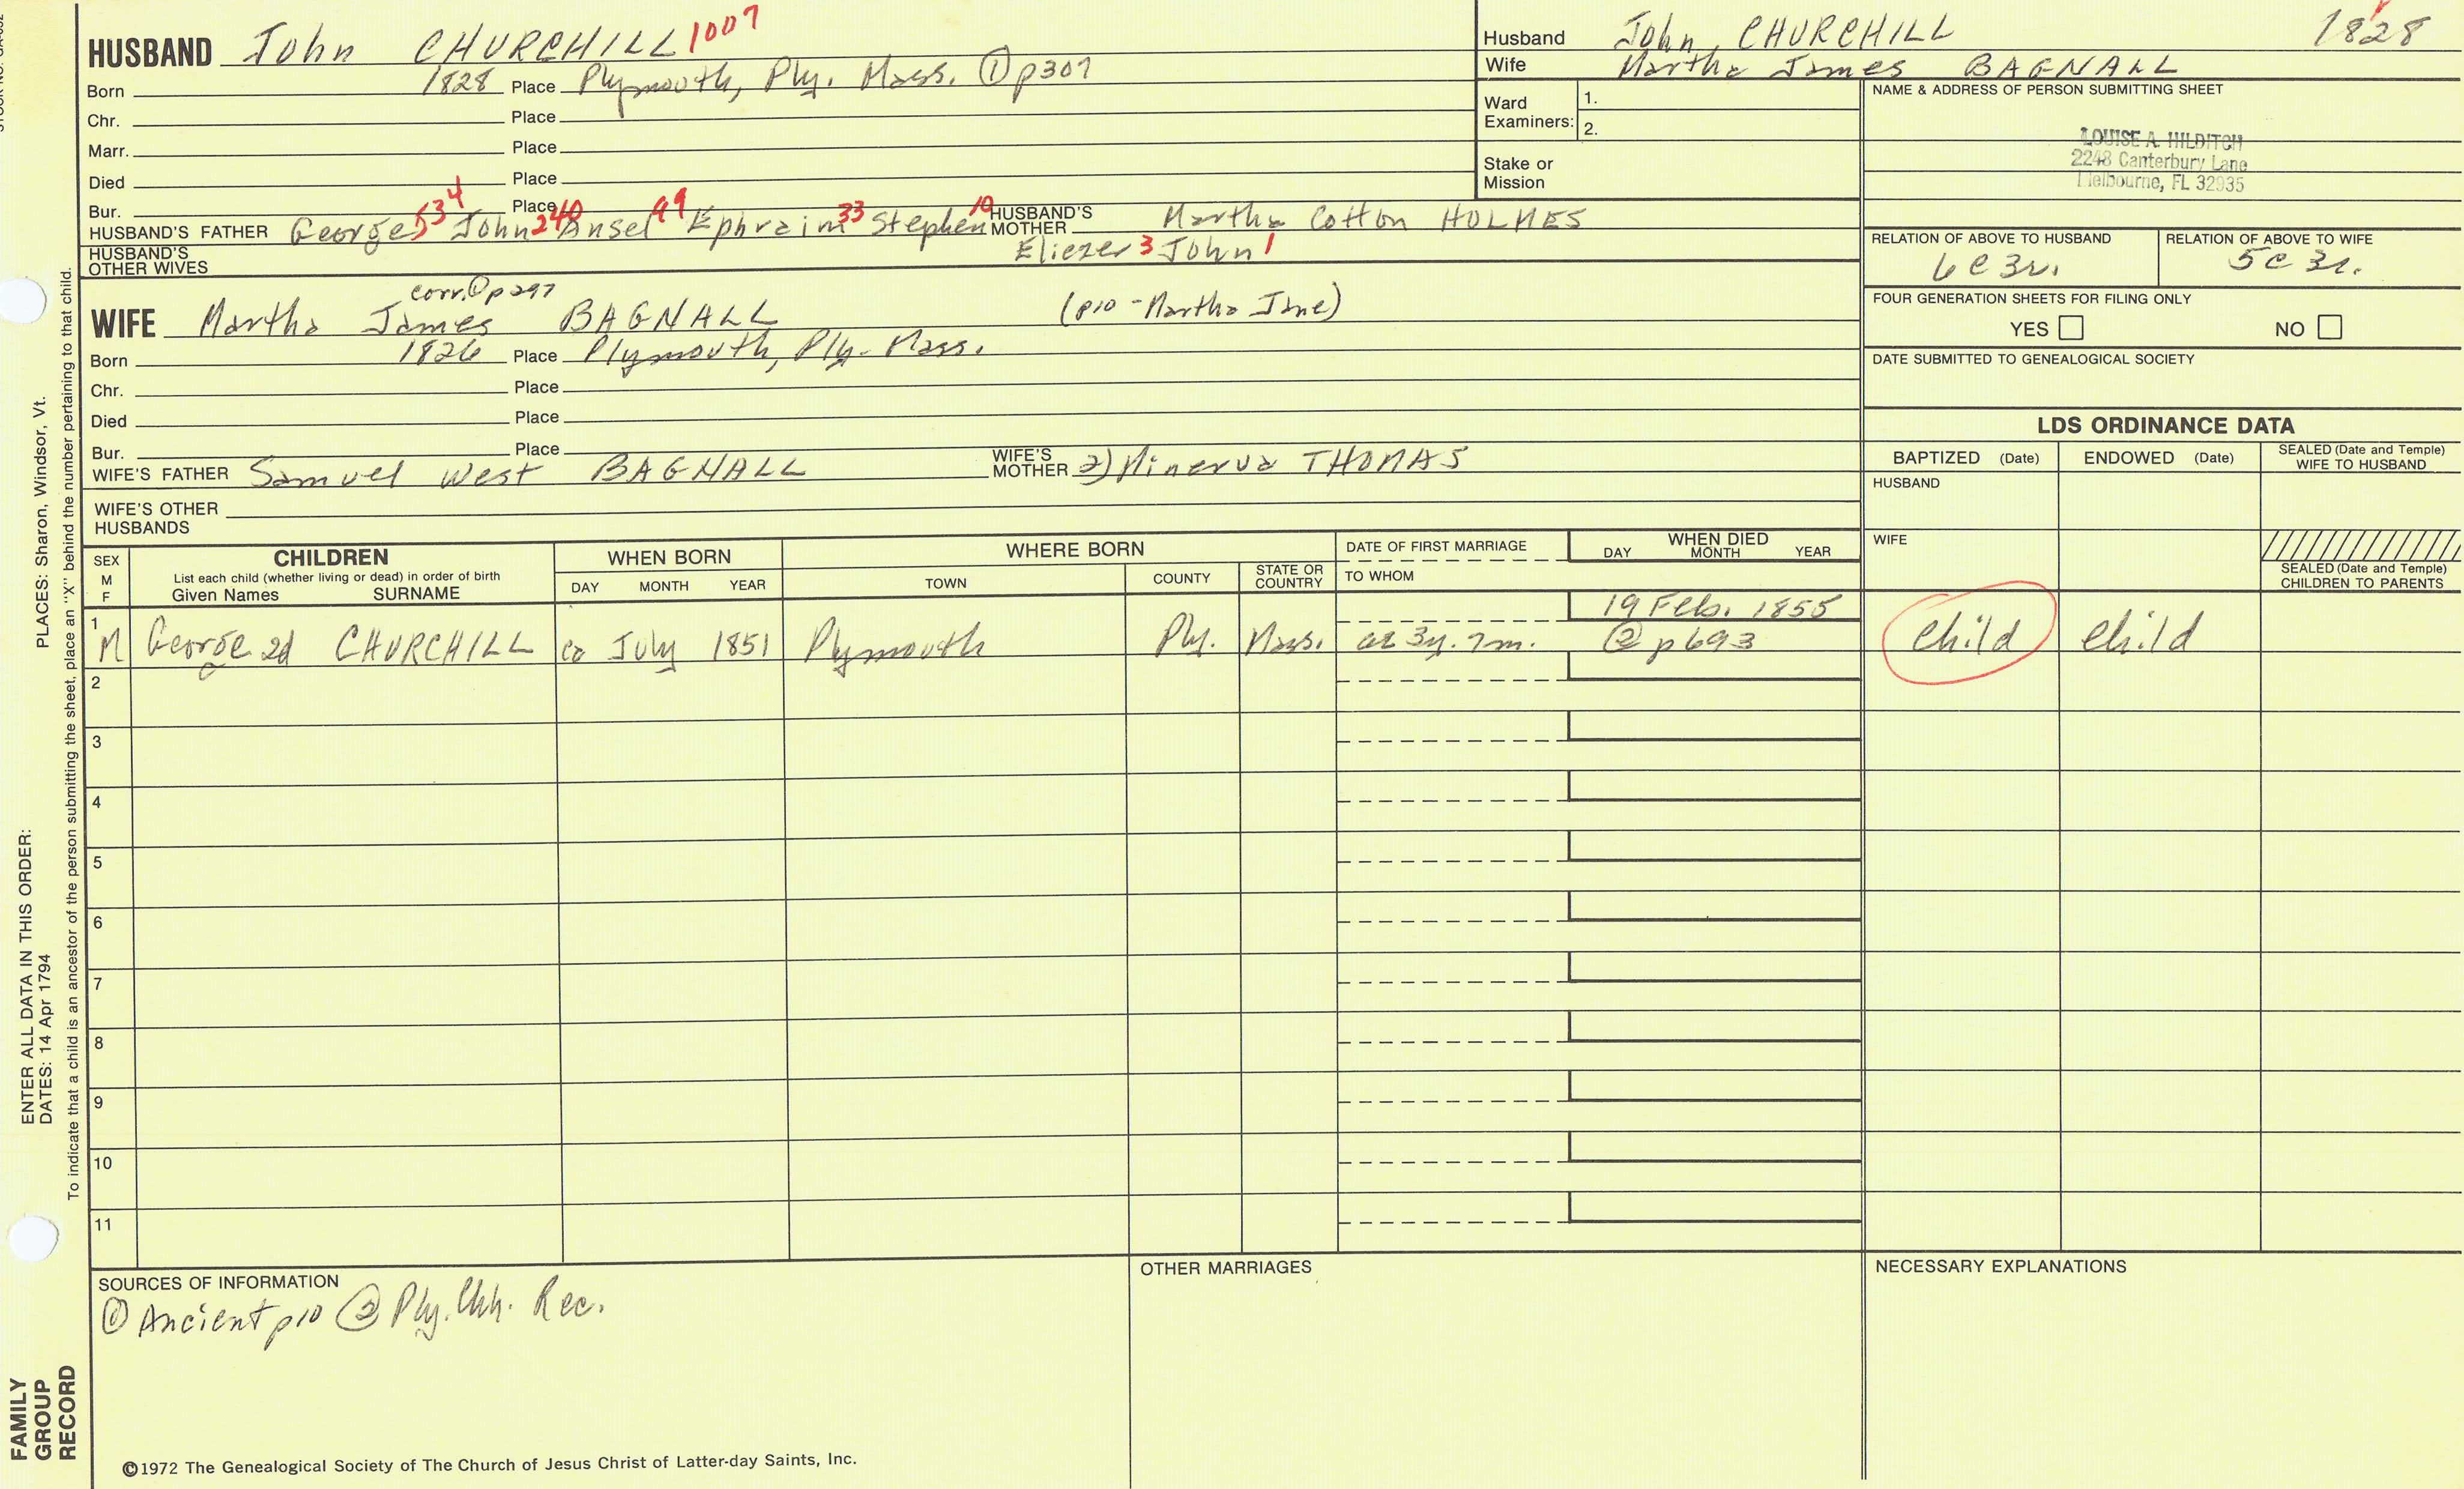 HUSBAND John CHURCHILL 1007
Born 1828 Place Plymouth, Ply. Mass. ① p307
Chr. Place
Marr. Place
Died Place
Bur. Place
HUSBAND'S FATHER George 534 John 240 Ansel 99 Ephraim 33 Stephen 10 HUSBAND'S MOTHER Martha Cotton HOLMES
HUSBAND'S OTHER WIVES Eliezer 3 John 1
corr. ① p297
WIFE Martha James BAGNALL (p10 - Martha Jane)
Born 1826 Place Plymouth, Ply. Mass.
Chr. Place
Died Place
Bur. Place
WIFE'S FATHER Samuel West BAGNALL WIFE'S MOTHER 2) Minerva THOMAS
WIFE'S OTHER HUSBANDS
Husband John CHURCHILL 1828
Wife Martha James BAGNALL
Ward Examiners: 1.
2.
Stake or Mission
NAME & ADDRESS OF PERSON SUBMITTING SHEET
LOUISE A. HILDITCH
2248 Canterbury Lane
Melbourne, FL 32935
RELATION OF ABOVE TO HUSBAND RELATION OF ABOVE TO WIFE
6C3r. 5C3r.
FOUR GENERATION SHEETS FOR FILING ONLY
YES NO
DATE SUBMITTED TO GENEALOGICAL SOCIETY
LDS ORDINANCE DATA
BAPTIZED (Date) ENDOWED (Date) SEALED (Date and Temple) WIFE TO HUSBAND
HUSBAND
WIFE
SEALED (Date and Temple) CHILDREN TO PARENTS
SEX M F CHILDREN List each child (whether living or dead) in order of birth Given Names SURNAME WHEN BORN DAY MONTH YEAR WHERE BORN TOWN COUNTY STATE OR COUNTRY DATE OF FIRST MARRIAGE TO WHOM WHEN DIED DAY MONTH YEAR
19 Feb. 1855
1 M George 2d CHURCHILL ca July 1851 Plymouth Ply. Mass. ae 3y. 7m. ② p693 child child
2
3
4
5
6
7
8
9
10
11
SOURCES OF INFORMATION
① Ancient p10 ② Ply. Chh. Rec.
OTHER MARRIAGES
NECESSARY EXPLANATIONS
©1972 The Genealogical Society of The Church of Jesus Christ of Latter-day Saints, Inc.
FAMILY GROUP RECORD
ENTER ALL DATA IN THIS ORDER:
DATES: 14 Apr 1794
PLACES: Sharon, Windsor, Vt.
To indicate that a child is an ancestor of the person submitting the sheet, place an "X" behind the number pertaining to that child.